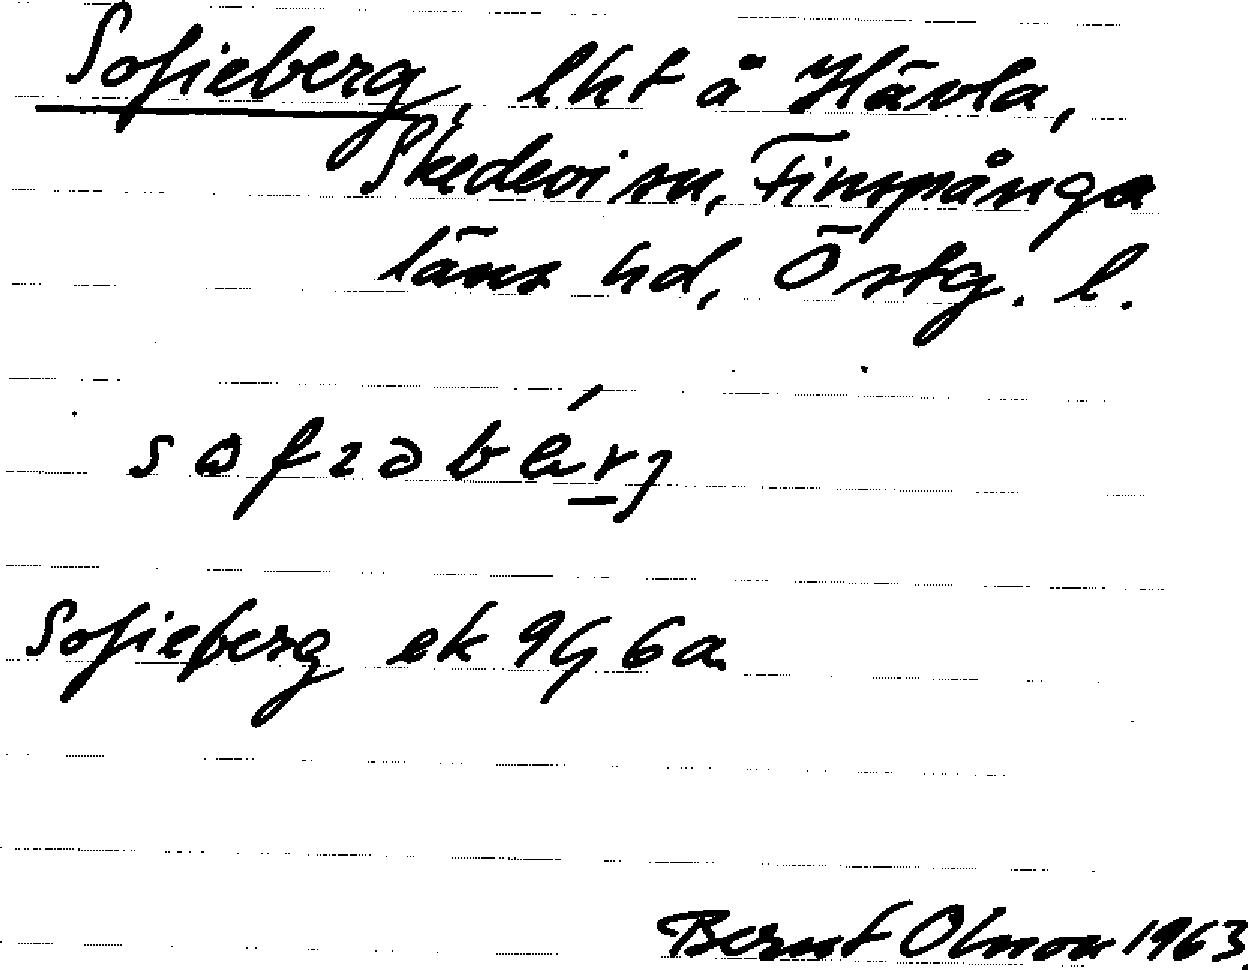 Sofieberg, lht å Hävla,
Skedevi sn, Finspånga
läns hd, Östg. l.
Sofieberg ek 9G 6a
Bernt Olsson 1963.